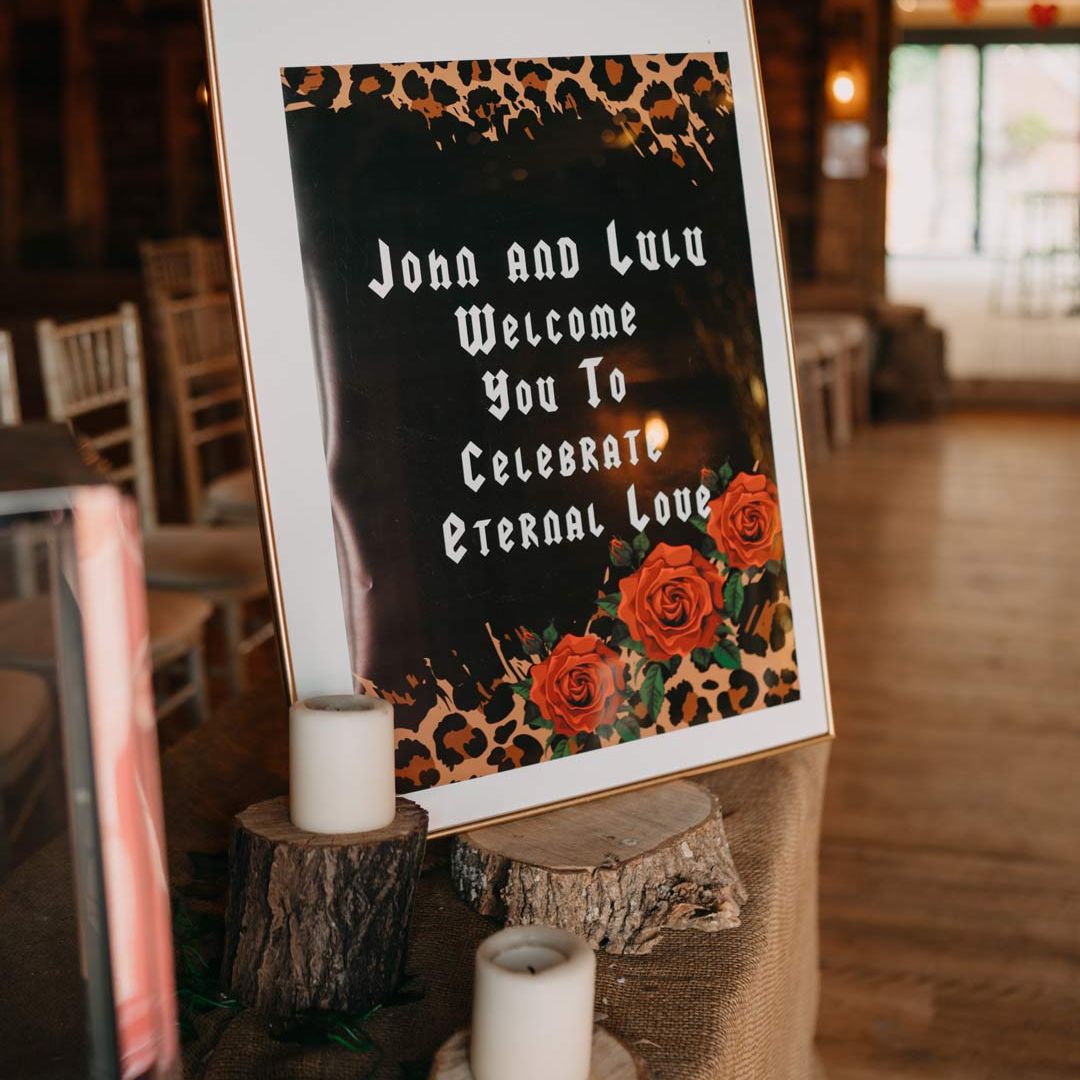 John and Lulu
Welcome
You To
Celebrate
Eternal Love